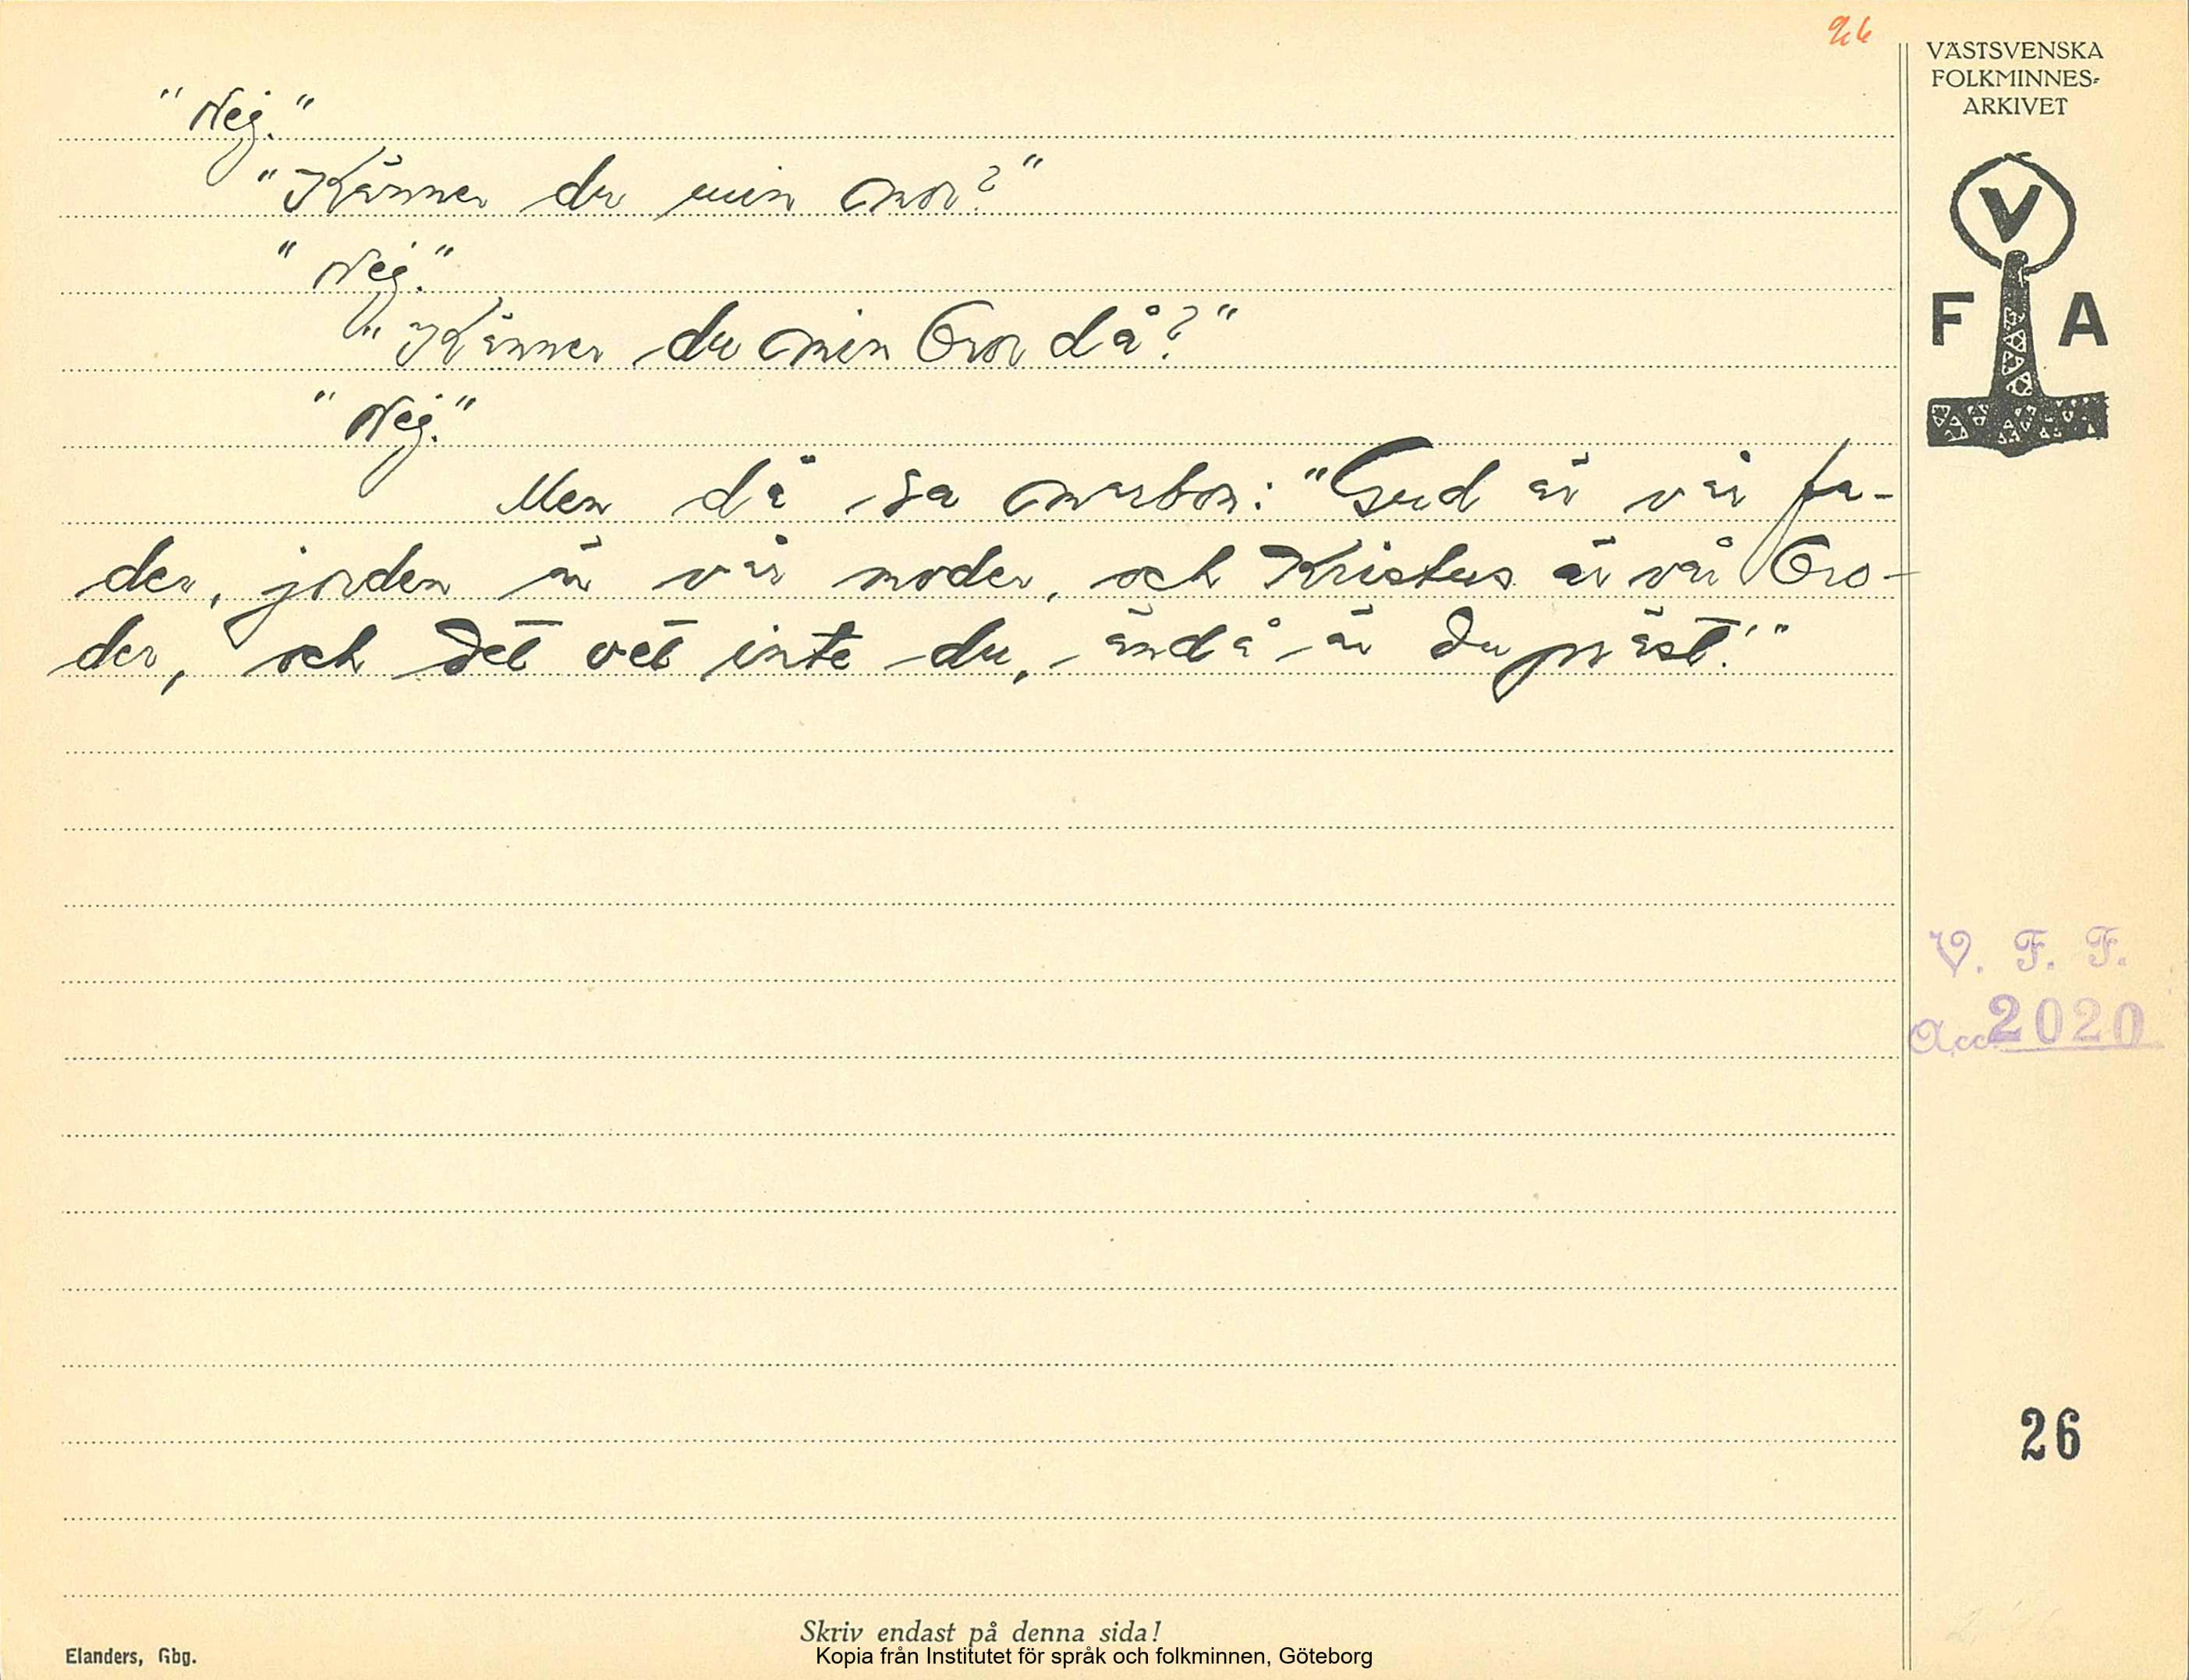 26
VÄSTSVENSKA
FOLKMINNES-
ARKIVET
V
F A
"Nej."
"Känner du min mor?"
"Nej."
"Känner du min bror då?"
"Nej."
Men då sa : "Gud är vår fa-
der, jorden är vår moder, och Kristus är vår bro-
der, och det vet inte du, ändå är du präst!"
V. F. F.
Acc. 2020
26
Skriv endast på denna sida!
Elanders, Gbg.
Kopia från Institutet för språk och folkminnen, Göteborg